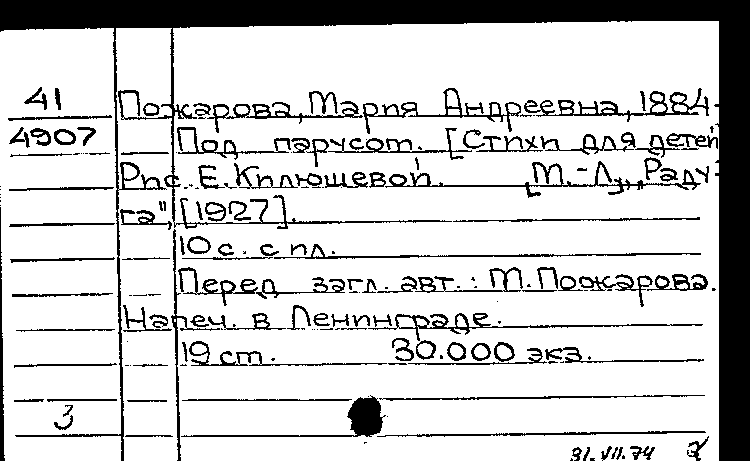 41 Пожарова, Мария Андреевна, 1884-
4907 Под парусом. [Стихи для детей
Рис. Е. Килюшевой. [М.-Л.], „Раду-
га", [1927].
10 с. с ил.
Перед загл. авт.: М. Пожарова.
Напеч. в Ленинграде.
19 см. 30.000 экз.
3
31.VII.74